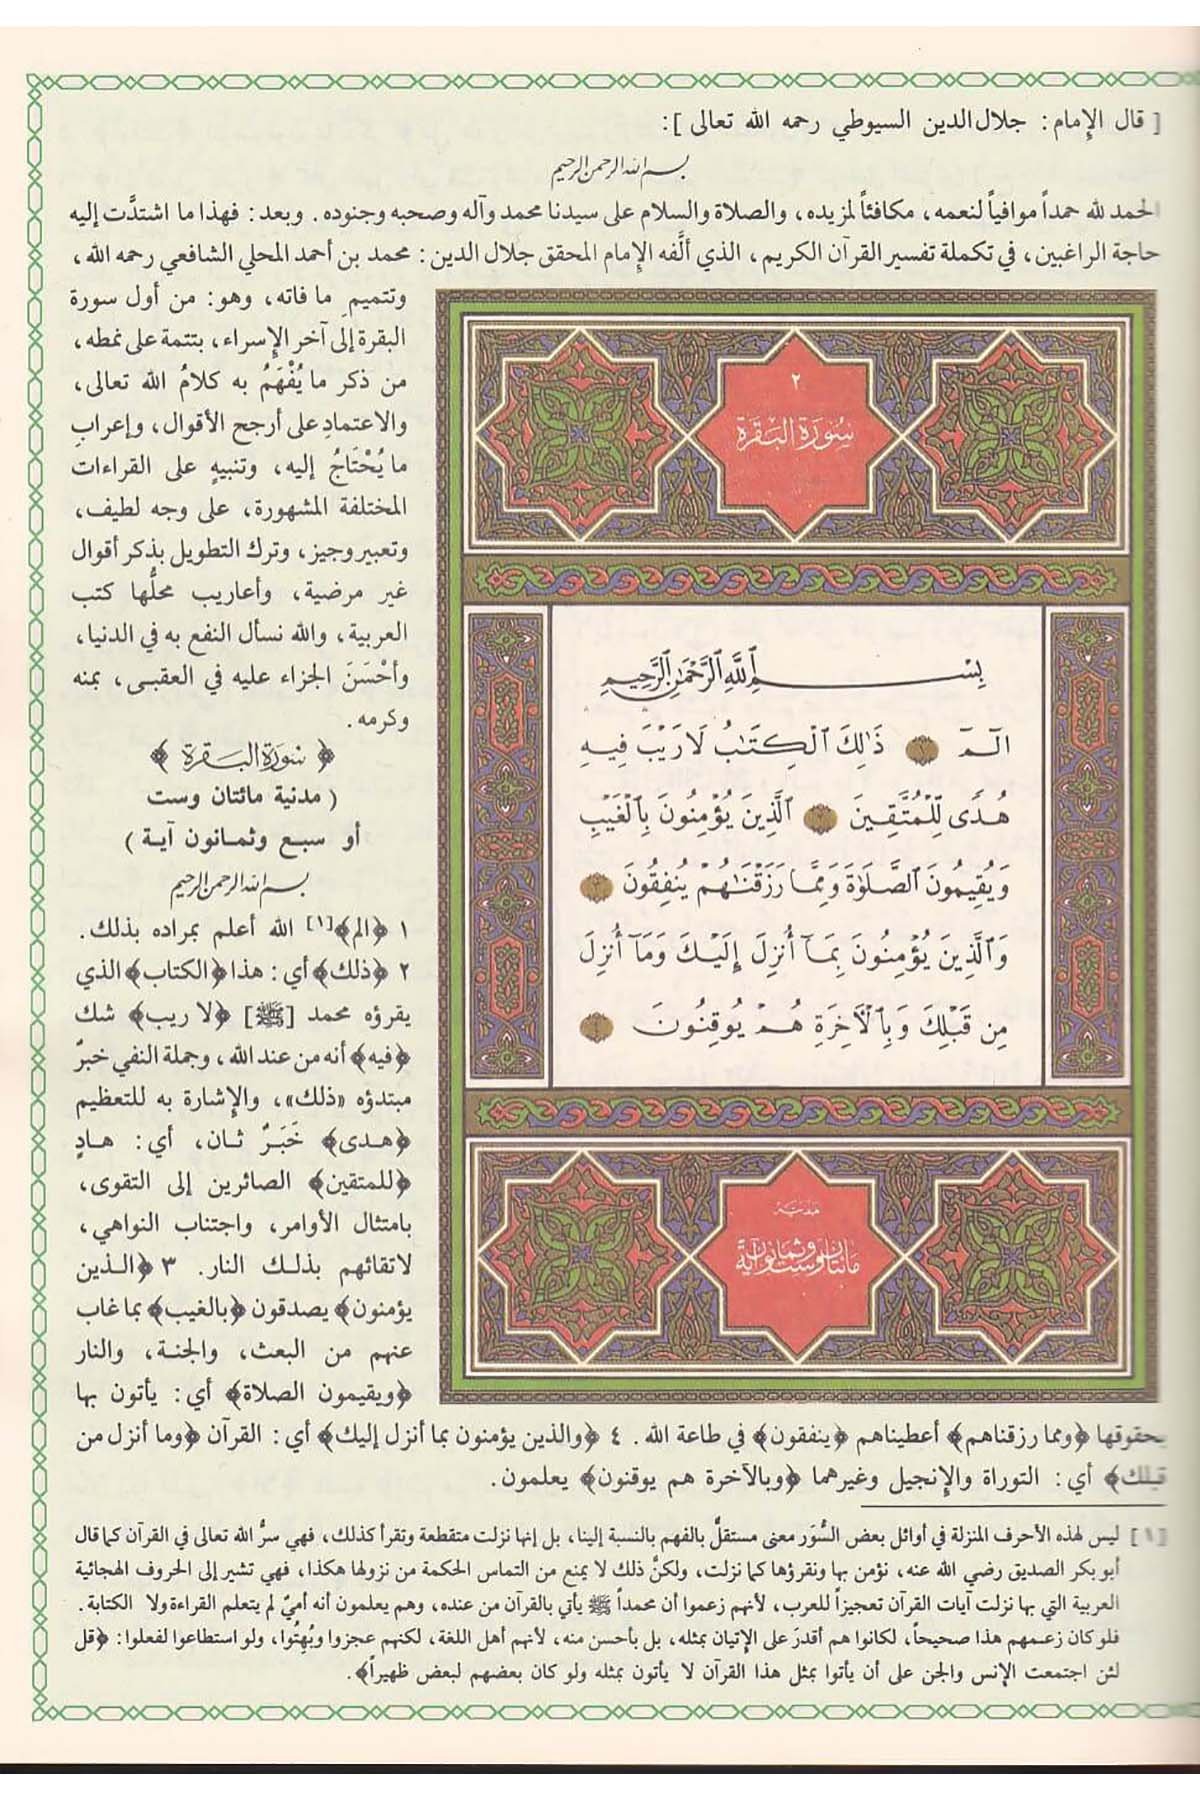 [ قال الإمام: جلال الدين السيوطي رحمه الله تعالى ]:
بسم الله الرحمن الرحيم
الحمد لله حمداً موافياً لنعمه، مكافئاً لمزيده، والصلاة والسلام على سيدنا محمد وآله وصحبه وجنوده. وبعد: فهذا ما اشتدَّت إليه
حاجة الراغبين، في تكملة تفسير القرآن الكريم، الذي ألَّفه الإمام المحقق جلال الدين: محمد بن أحمد المحلي الشافعي رحمه الله،
وتتميم ما فاته، وهو: من أول سورة
البقرة إلى آخر الإسراء، بتتمة على نمطه،
من ذكر ما يُفْهَمُ به كلامُ الله تعالى،
والاعتمادِ على أرجح الأقوال، وإعرابِ
ما يُحْتَاجُ إليه، وتنبيهٍ على القراءات
المختلفة المشهورة، على وجه لطيف،
وتعبير وجيز، وترك التطويل بذكر أقوال
غير مرضية، وأعاريب محلُّها كتب
العربية، والله نسأل النفع به في الدنيا،
وأحْسَنَ الجزاء عليه في العقبى، بمنه
وكرمه.
﴿ سورة البقرة ﴾
( مدنية مائتان وست
أو سبع وثمانون آية )
بسم الله الرحمن الرحيم
١ ﴿الم﴾[١] الله أعلم بمراده بذلك.
٢ ﴿ذلك﴾ أي: هذا ﴿الكتاب﴾ الذي
يقرؤه محمد [ﷺ] ﴿لا ريب﴾ شك
﴿فيه﴾ أنه من عند الله، وجملة النفي خبرٌ
مبتدؤه «ذلك»، والإشارة به للتعظيم
﴿هدى﴾ خَبَرٌ ثان، أي: هادٍ
﴿للمتقين﴾ الصائرين إلى التقوى،
بامتثال الأوامر، واجتناب النواهي،
لاتقائهم بذلك النار. ٣ ﴿الذين
يؤمنون﴾ يصدقون ﴿بالغيب﴾ بما غاب
عنهم من البعث، والجنة، والنار
﴿ويقيمون الصلاة﴾ أي: يأتون بها
بحقوقها ﴿ومما رزقناهم﴾ أعطيناهم ﴿ينفقون﴾ في طاعة الله. ٤ ﴿والذين يؤمنون بما أنزل إليك﴾ أي: القرآن ﴿وما أنزل من
قبلك﴾ أي: التوراة والإنجيل وغيرهما ﴿وبالآخرة هم يوقنون﴾ يعلمون.
٢
سُورَةُ البَقَرَة
بِسْمِ ٱللَّهِ ٱلرَّحْمَٰنِ ٱلرَّحِيمِ
الٓمٓ ١ ذَٰلِكَ ٱلْكِتَٰبُ لَا رَيْبَ فِيهِ
هُدًى لِّلْمُتَّقِينَ ٢ ٱلَّذِينَ يُؤْمِنُونَ بِٱلْغَيْبِ
وَيُقِيمُونَ ٱلصَّلَوٰةَ وَمِمَّا رَزَقْنَٰهُمْ يُنفِقُونَ ٣
وَٱلَّذِينَ يُؤْمِنُونَ بِمَآ أُنزِلَ إِلَيْكَ وَمَآ أُنزِلَ
مِن قَبْلِكَ وَبِٱلْأَخِرَةِ هُمْ يُوقِنُونَ ٤
مدنية
مائتان وست وثمانون آية
[١] ليس لهذه الأحرف المنزلة في أوائل بعض السُّوَر معنى مستقلٌّ بالفهم بالنسبة إلينا، بل إنها نزلت متقطعة وتقرأ كذلك، فهي سرُّ الله تعالى في القرآن كما قال
أبو بكر الصديق رضي الله عنه، نؤمن بها ونقرؤها كما نزلت، ولكنَّ ذلك لا يمنع من التماس الحكمة من نزولها هكذا، فهي تشير إلى الحروف الهجائية
العربية التي بها نزلت آيات القرآن تعجيزاً للعرب، لأنهم زعموا أن محمداً ﷺ يأتي بالقرآن من عنده، وهم يعلمون أنه أميٌّ لم يتعلم القراءة ولا الكتابة.
فلو كان زعمهم هذا صحيحاً، لكانوا هم أقدرَ على الإتيان بمثله، بل بأحسن منه، لأنهم أهل اللغة، لكنهم عجزوا وبُهِتُوا، ولو استطاعوا لفعلوا: ﴿قل
لئن اجتمعت الإنس والجن على أن يأتوا بمثل هذا القرآن لا يأتون بمثله ولو كان بعضهم لبعض ظهيراً﴾.